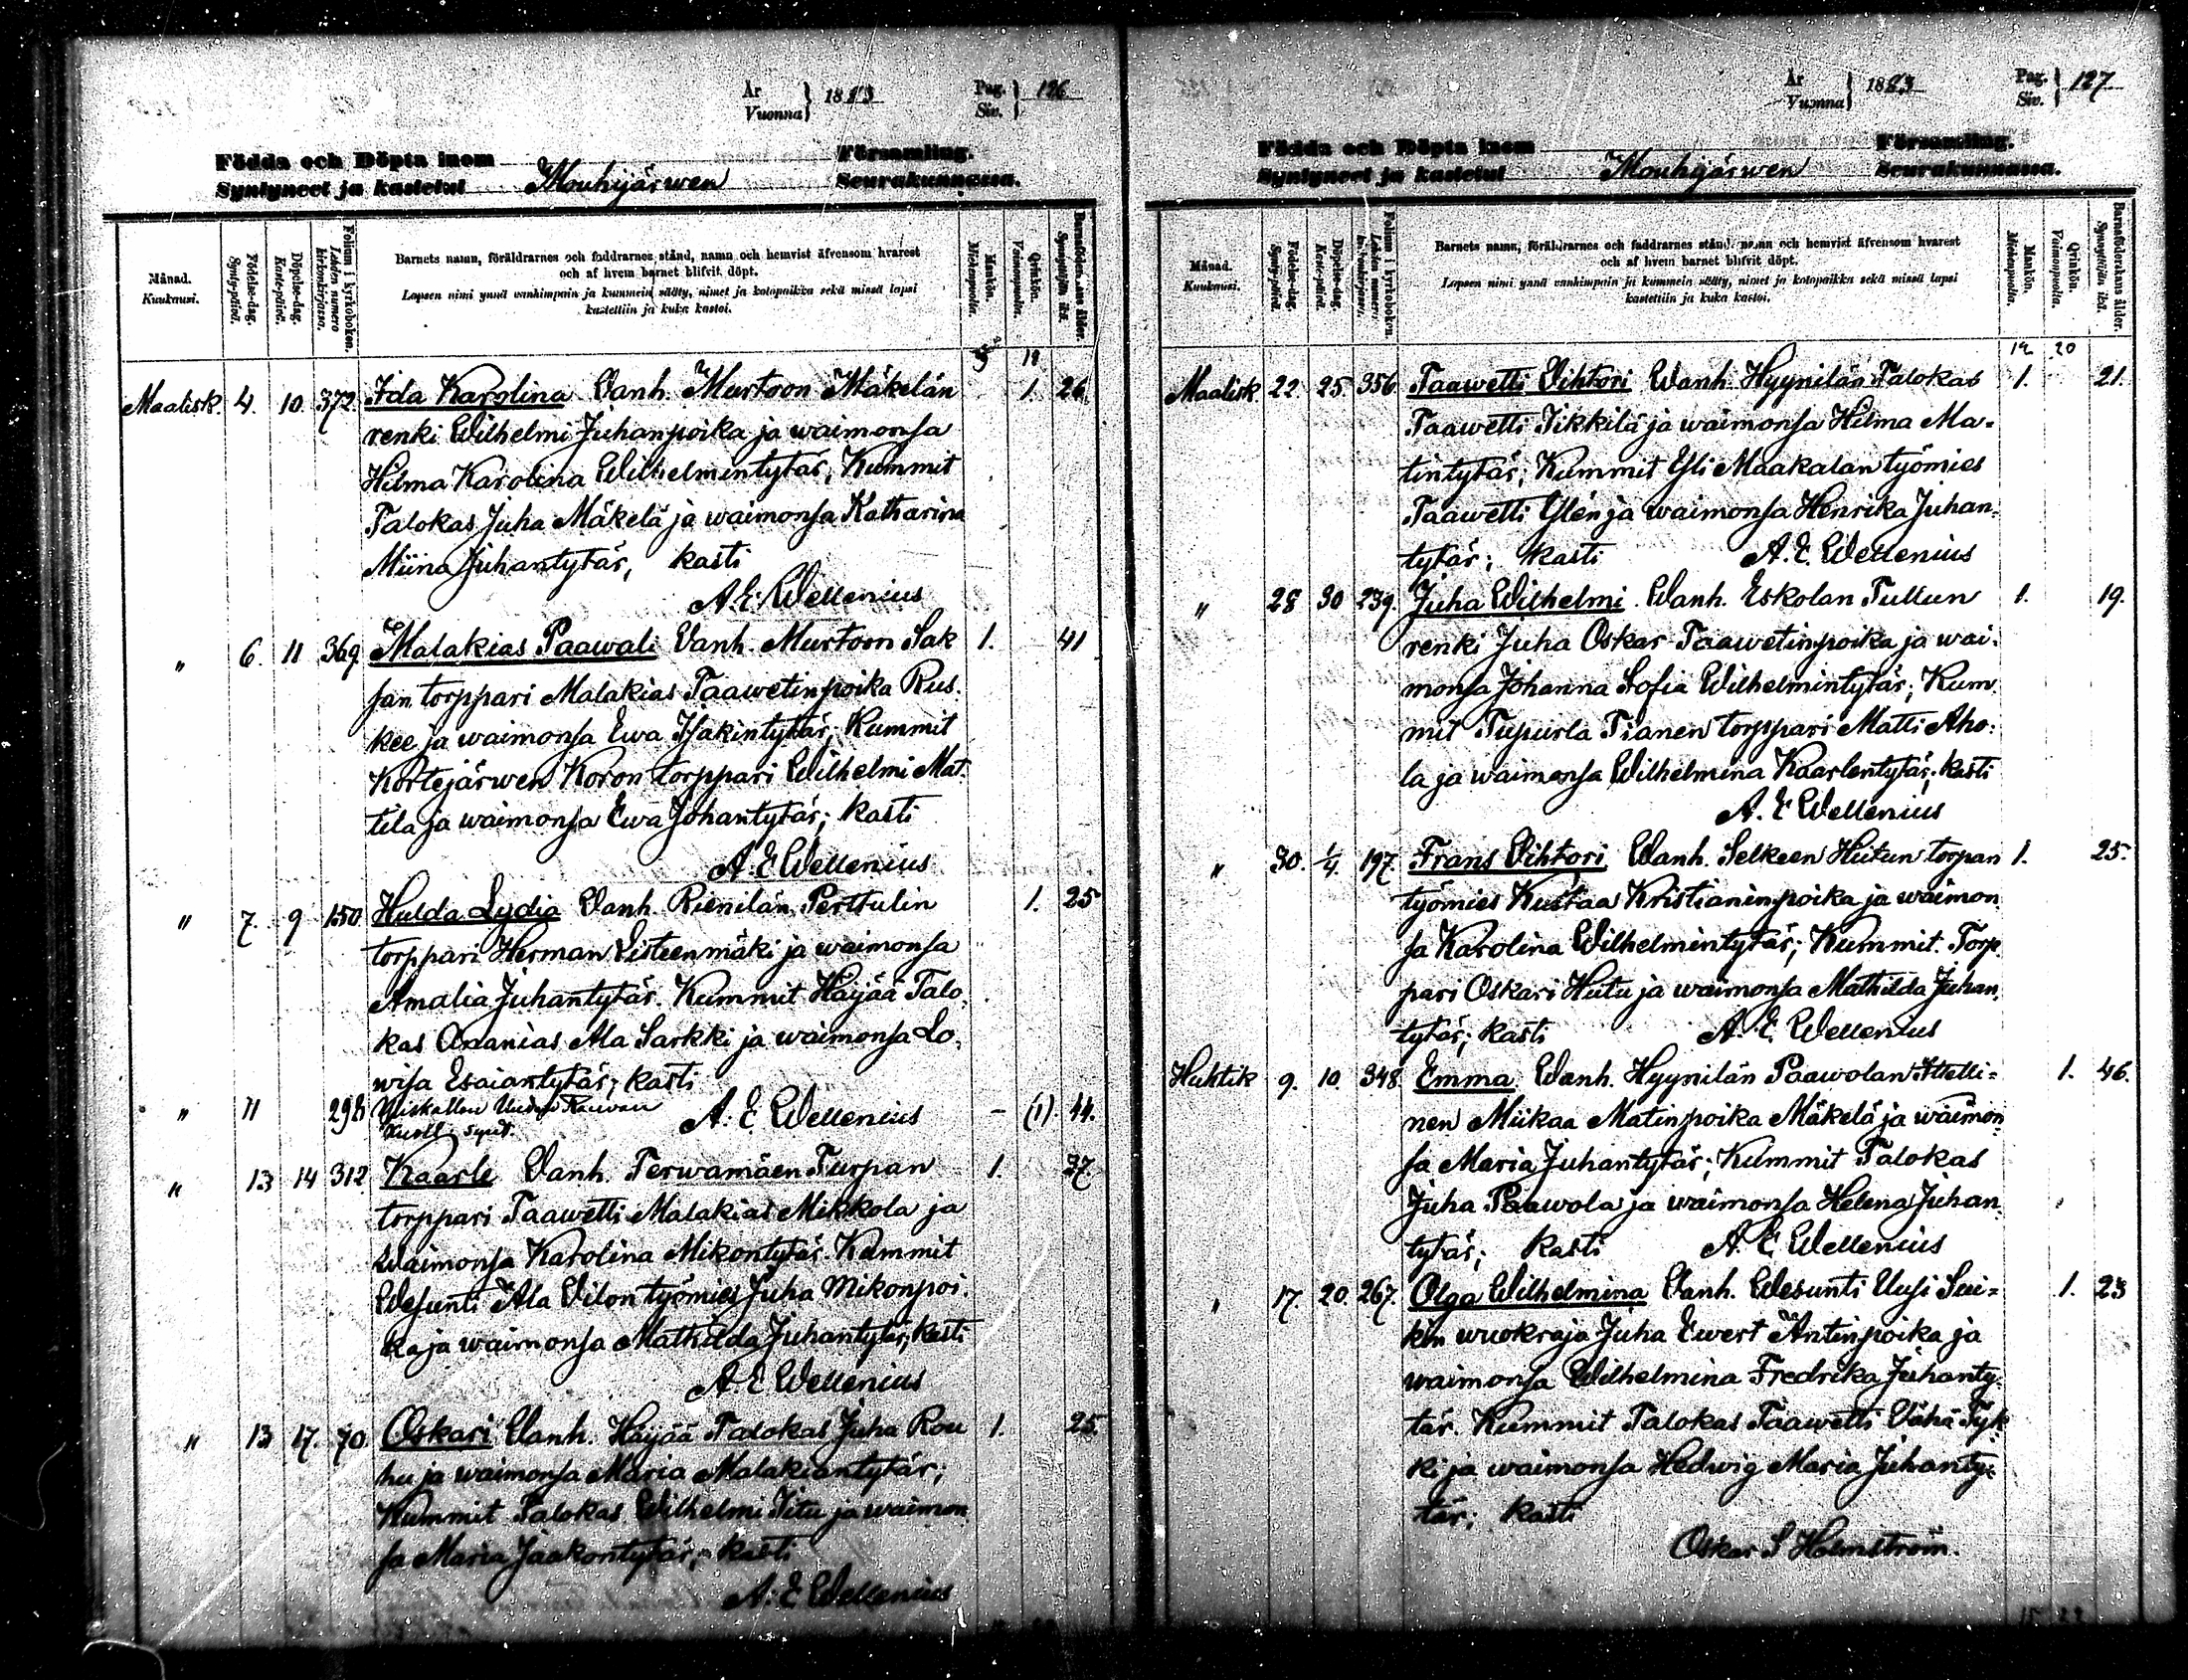 År
Vuonna } 1883
Pag.
Siv. } 126
Födda och Döpta inom Församling.
Syntyneet ja kastetut Mouhijärwen Seurakunnassa.
Månad.
Kuukausi.
Födelse-dag.
Synty-päivä.
Döpelse-dag.
Kaste-päivä.
Folium i kyrkoboken.
Lehden numero
kirkonkirjassa.
Barnets namn, föräldrarnes och faddrarnes stånd, namn och hemvist äfvensom hvarest
och af hvem barnet blifvit döpt.
Lapsen nimi ynnä vanhimpain ja kummein sääty, nimet ja kotopaikka sekä missä lapsi
kastettiin ja kuka kastoi.
Mankön.
Miehenpuolia.
Qvinkön.
Vaimonpuolia.
Barnaföderskans ålder.
Synnyttäjän ikä.
Maalisk. 4. 10. 372. Ida Karolina Vanh. Murtoon Mäkelän 1. 26.
renki Wilhelmi Juhanpoika ja waimonsa
Hilma Karolina Wilhelmintytär; Kummit
Talokas Juha Mäkelä ja waimonsa Katharina
Miina Juhantytär, kasti
A. E. Wellenius
" 6. 11 369 Malakias Paawali Vanh. Murtoon Sak 1. 41
san torppari Malakias Taawetinpoika Rus-
kee ja waimonsa Ewa Isakintytär; Kummit
Kortejärwen Koron torppari Wilhelmi Mat-
tila ja waimonsa Ewa Johantytär; kasti
A. E Wellenius
" 7. 9 150 Hulda Lydia Vanh. Rienilän Perttulin 1. 25
torppari Herman Listeenmäki ja waimonsa
Amalia Juhantytär. Kummit Häijää Talo-
kas Ananias Ala Sarkki ja waimonsa Lo-
wisa Esaiantytär; kasti
A. E. Wellenius
" 11 298 Yliskallon Uuden Rauvan - (1). 44.
kuoll. synt.
" 13 14 312 Kaarle Vanh. Terwamäen Turpan 1. 37
torppari Taawetti Malakias Mikkola ja
waimonsa Karolina Mikontytär. Kummit
Wesunti Ala Vilon työmies Juha Mikonpoi-
ka ja waimonsa Mathilda Juhantytär; kasti
A. E Wellenius
" 13 17. 70 Oskari Vanh. Häijää Talokas Juha Rou 1. 25.
hu ja waimonsa Maria Malakiantytär;
Kummit Talokas Wilhelmi Iitu ja waimon
sa Maria Jaakontytär; kasti
A. E Wellenius
År
Vuonna } 1883
Pag.
Siv. } 127
Födda och Döpta inom Församling.
Syntyneet ja kastetut Mouhijärwen Seurakunnassa.
Månad.
Kuukausi.
Födelse-dag.
Synty-päivä.
Döpelse-dag.
Kaste-päivä.
Folium i kyrkoboken.
Lehden numero
kirkonkirjassa.
Barnets namn, föräldrarnes och faddrarnes stånd, namn och hemvist äfvensom hvarest
och af hvem barnet blifvit döpt.
Lapsen nimi ynnä vanhimpain ja kummein sääty, nimet ja kotopaikka sekä missä lapsi
kastettiin ja kuka kastoi.
Mankön.
Miehenpuolia.
Qvinkön.
Vaimonpuolia.
Barnaföderskans ålder.
Synnyttäjän ikä.
20
Maalisk 22. 25. 356 Taawetti Vihtori Wanh. Hyynilän Talokas 1. 21.
Taawetti Iikkilä ja waimonsa Hilma Ma-
tintytär; Kummit Yli Maakalan työmies
Taawetti Ylén ja waimonsa Henrika Juhan-
tytär; kasti A. E. Wellenius
" 28 30 239. Juha Wilhelmi. Wanh. Eskolan Tullun 1. 19.
renki Juha Oskar Taawetinpoika ja wai-
monsa Johanna Sofia Wilhelmintytär; Kum-
mit Tupurla Pianen torppari Matti Aho-
la ja waimonsa Wilhelmina Kaarlentytär; kasti
A. E Wellenius
" 30. 1/4. 197. Frans Vihtori. Wanh. Selkeen Hutun torpan 1. 25.
työmies Kustaa Kristianinpoika ja waimon-
sa Karolina Wilhelmintytär; Kummit. Torp-
pari Oskari Hutu ja waimonsa Mathilda Juhan-
tytär; kasti A. E. Wellenius
Huhtik 9. 10. 348. Emma. Wanh. Hyynilän Paawolan Itelli- 1. 46.
nen Miikaa Matinpoika Mäkelä ja waimon-
sa Maria Juhantytär; Kummit Talokas
Juha Paawola ja waimonsa Helena Juhan-
tytär; kasti A. E. Wellenius
" 17. 20. 267. Olga Wilhelmina Vanh. Wesunti Uusi Sui- 1. 23
kin wuokraja Juha Ewert Antinpoika ja
waimonsa Wilhelmina Fredrika Juhanty-
tär. Kummit Talokas Taawetti Vähä Tyk
ki ja waimonsa Hedwig Maria Juhanty-
tär; kasti
Oskar S Holmström.